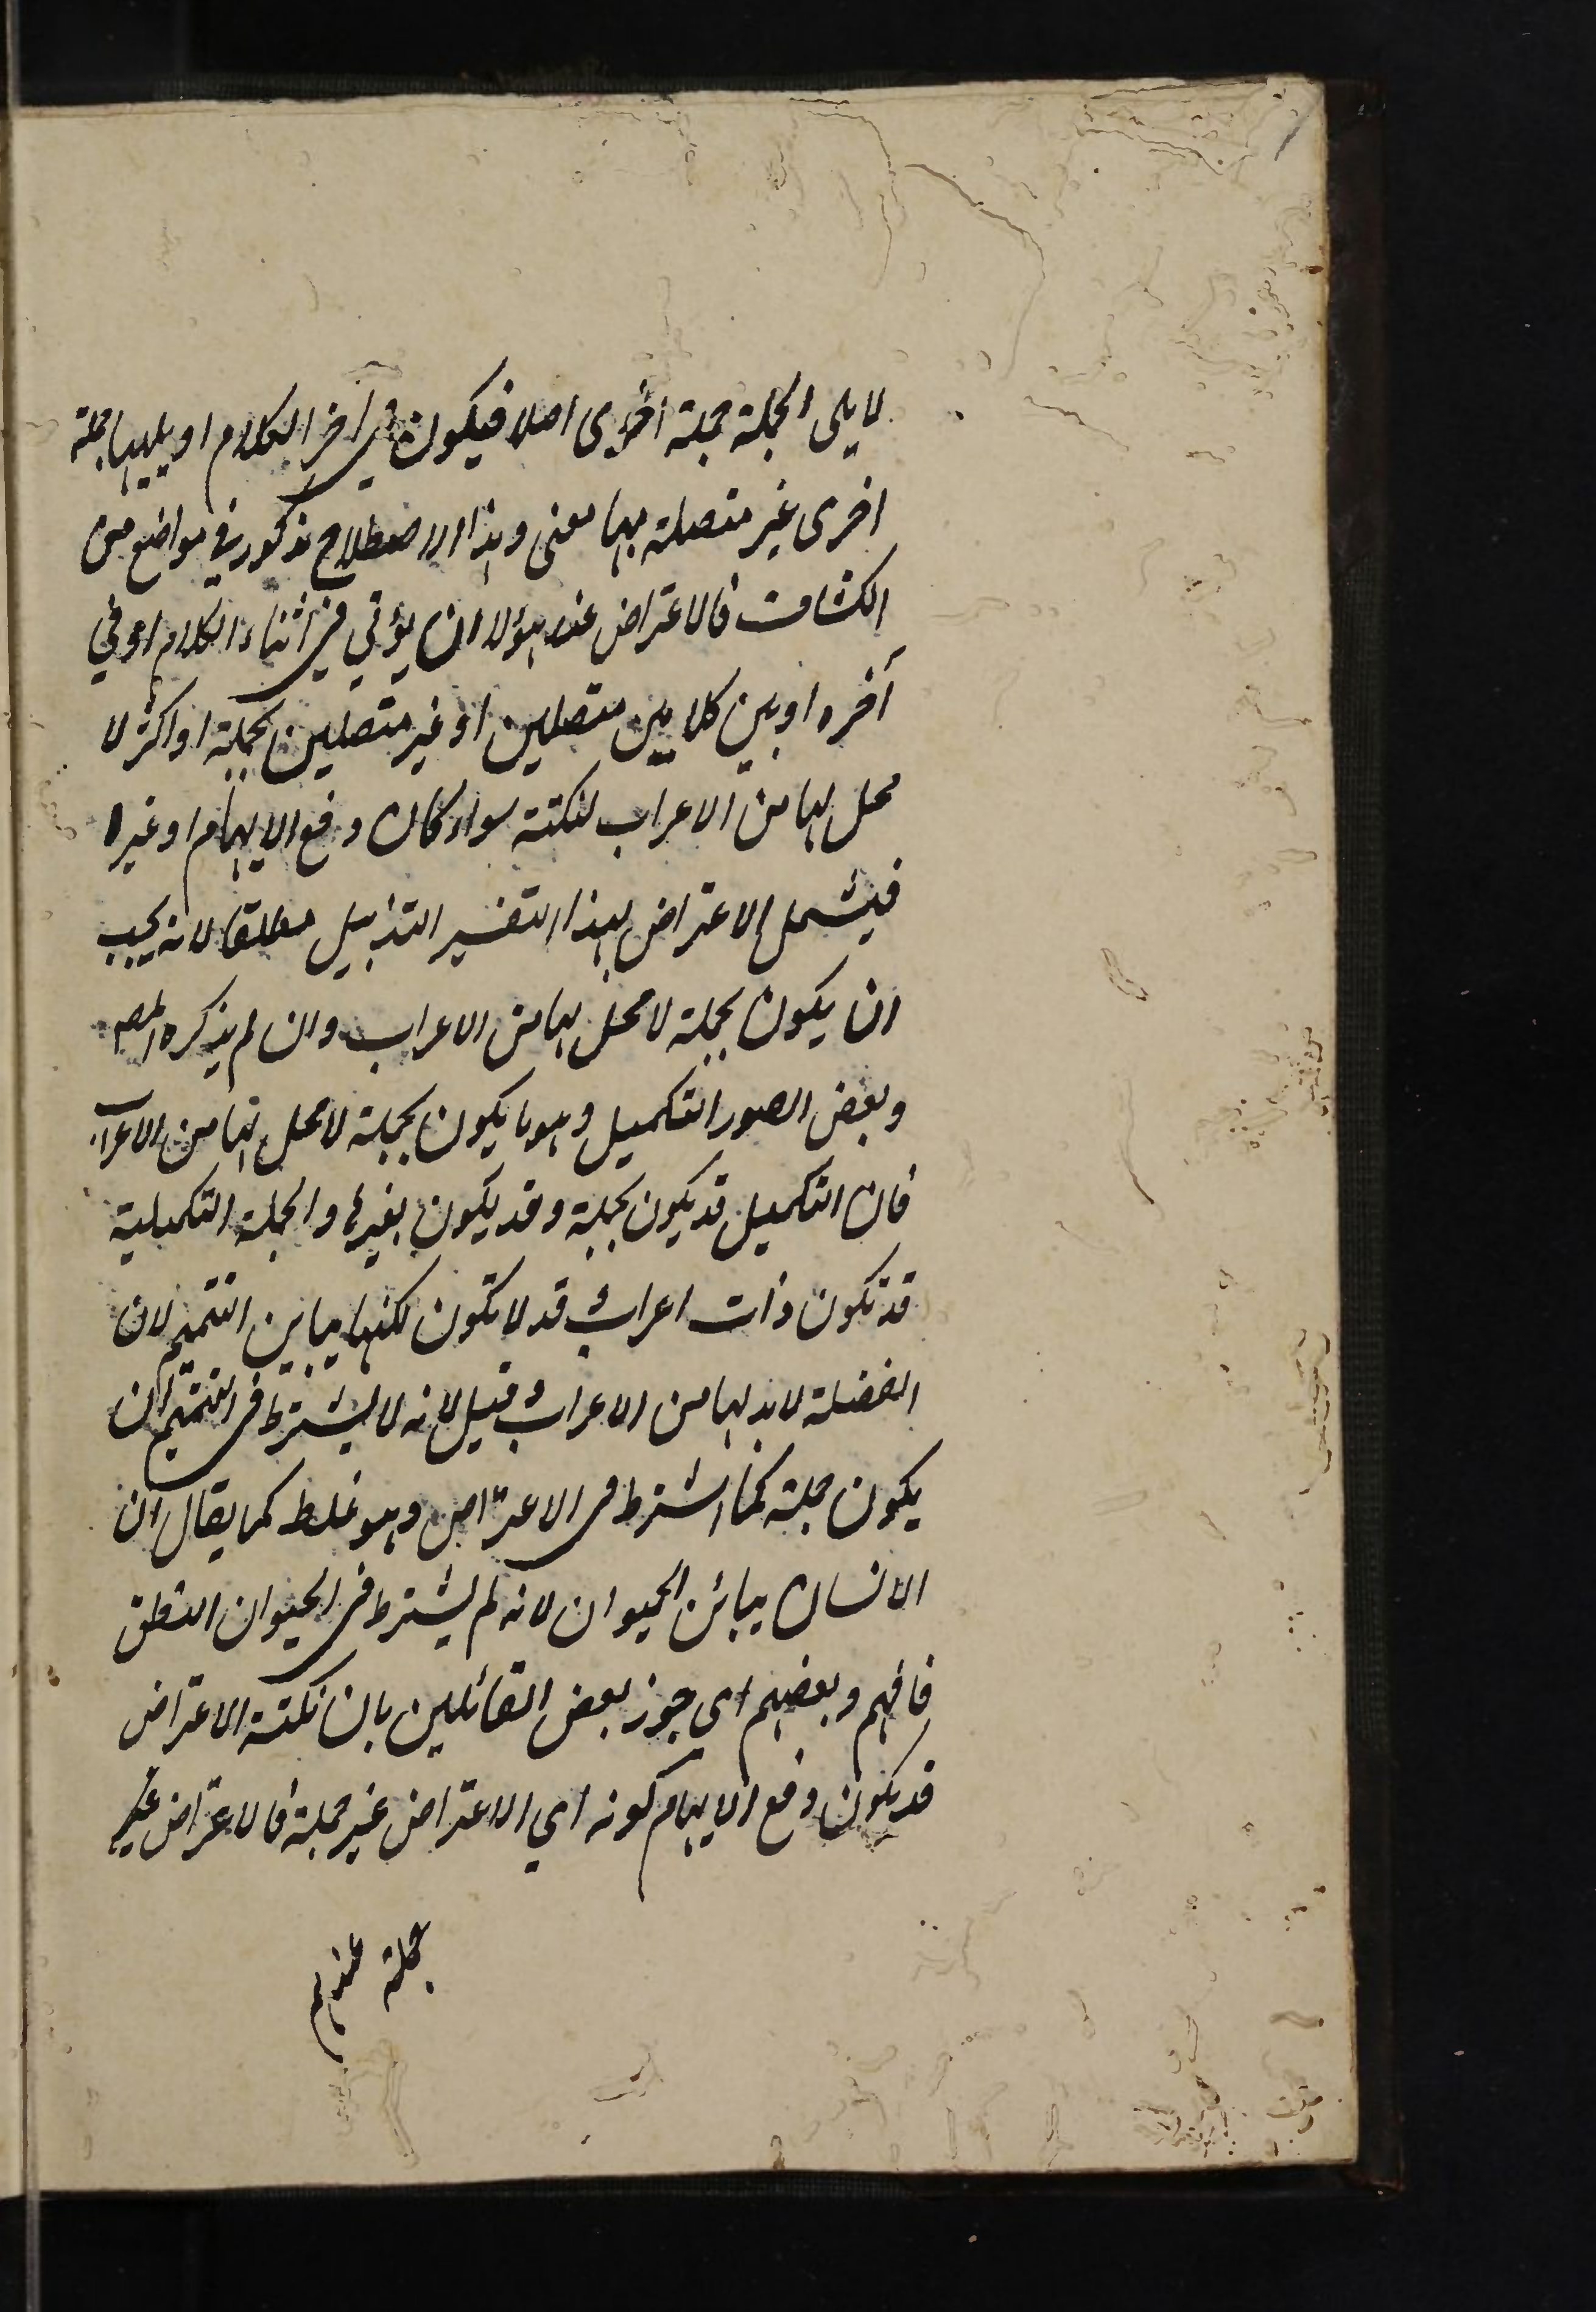 لا يلى الجملة جملة اخرى اصلا فيكون في آخر الكلام او يليها جملة
اخرى غير متصلة بها معنى وهذا الاصطلاح مذكور في مواضع من
الكشاف فالاعتراض عند هؤلا ان يؤتي في اثناء الكلام او في
آخره او بين كلامين متصلين او غير متصلين بجملة او اكثر لا
محل لها من الاعراب لنكتة سواء كان دفع الايهام او غيره
فيشمل الاعتراض بهذا التفسير التذييل مطلقا لانه يجب
ان يكون بجملة لا محل لها من الاعراب وان لم يذكره المص
وبعض الصور التكميل وهو ما يكون بجملة لا محل لها من الاعراب
فان التكميل قد يكون بجملة وقد يكون بغيرها والجملة التكميلية
قد تكون ذات اعراب وقد لا تكون لكنها يباين التتميم لان
الفضلة لا بد لها من الاعراب وقيل لانه لا يشترط في التتميم ان
يكون جملة كما اشترط في الاعتراض وهو غلط كما يقال ان
الانسان يباين الحيوان لانه لم يشترط في الحيوان النطق
فافهم وبعضهم اي جوز بعض القائلين بان نكتة الاعتراض
قد يكون دفع الايهام كونه اي الاعتراض غير جملة فالاعتراض عند
جملة عندهم